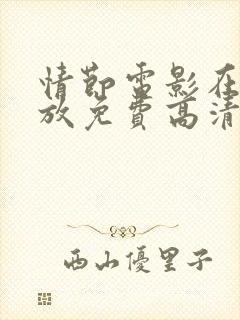 情節電影在
放免費高清
西山優里子